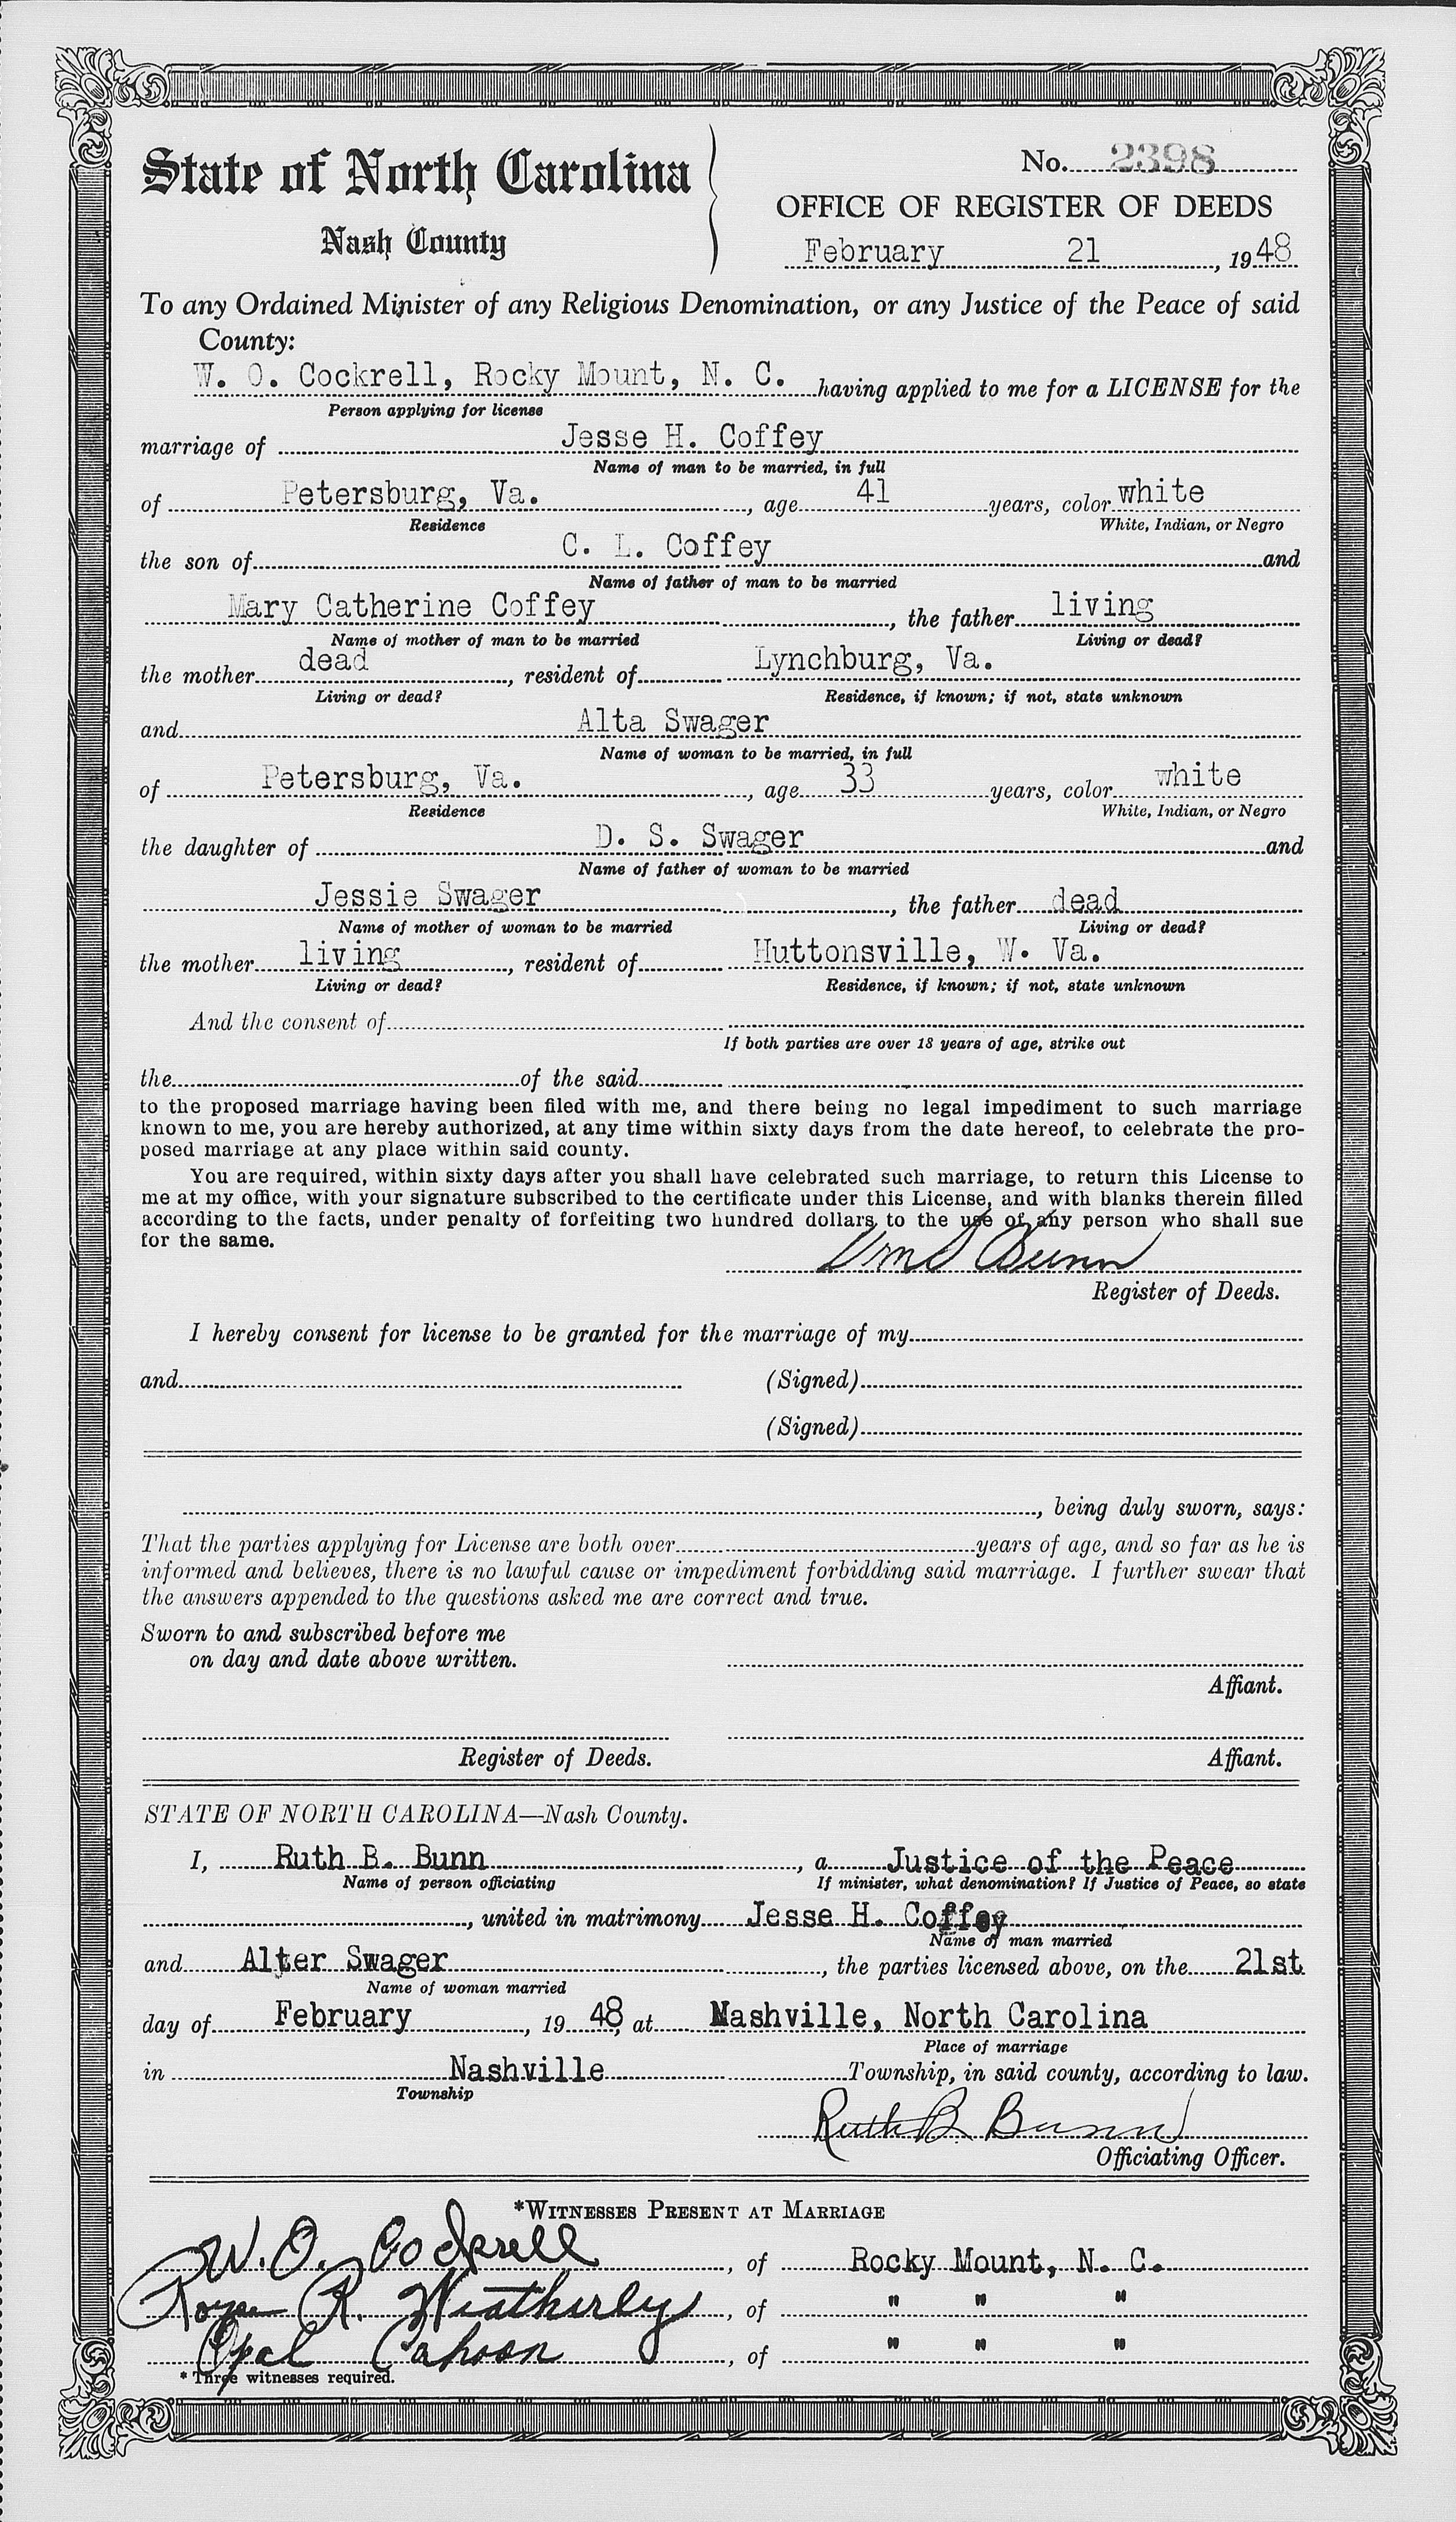 State of North Carolina
Nash County
No. 2398
OFFICE OF REGISTER OF DEEDS
February 21, 1948
To any Ordained Minister of any Religious Denomination, or any Justice of the Peace of said
County:
W. O. Cockrell, Rocky Mount, N. C. having applied to me for a LICENSE for the
Person applying for license
marriage of Jesse H. Coffey
Name of man to be married, in full
of Petersburg, Va., age 41 years, color white
Residence White, Indian, or Negro
the son of C. L. Coffey and
Name of father of man to be married
Mary Catherine Coffey, the father living
Name of mother of man to be married Living or dead?
the mother dead, resident of Lynchburg, Va.
Living or dead? Residence, if known; if not, state unknown
and Alta Swager
Name of woman to be married, in full
of Petersburg, Va., age 33 years, color white
Residence White, Indian, or Negro
the daughter of D. S. Swager and
Name of father of woman to be married
Jessie Swager, the father dead
Name of mother of woman to be married Living or dead?
the mother living, resident of Huttonsville, W. Va.
Living or dead? Residence, if known; if not, state unknown
And the consent of
If both parties are over 18 years of age, strike out
the of the said
to the proposed marriage having been filed with me, and there being no legal impediment to such marriage
known to me, you are hereby authorized, at any time within sixty days from the date hereof, to celebrate the pro-
posed marriage at any place within said county.
You are required, within sixty days after you shall have celebrated such marriage, to return this License to
me at my office, with your signature subscribed to the certificate under this License, and with blanks therein filled
according to the facts, under penalty of forfeiting two hundred dollars to the use of any person who shall sue
for the same.
Wm S Bunn
Register of Deeds.
I hereby consent for license to be granted for the marriage of my
and (Signed)
(Signed)
, being duly sworn, says:
That the parties applying for License are both over years of age, and so far as he is
informed and believes, there is no lawful cause or impediment forbidding said marriage. I further swear that
the answers appended to the questions asked me are correct and true.
Sworn to and subscribed before me
on day and date above written.
Affiant.
Register of Deeds. Affiant.
STATE OF NORTH CAROLINA—Nash County.
I, Ruth B. Bunn, a Justice of the Peace
Name of person officiating If minister, what denomination? If Justice of Peace, so state
, united in matrimony Jesse H. Coffey
Name of man married
and Alter Swager, the parties licensed above, on the 21st
Name of woman married
day of February, 19 48, at Nashville, North Carolina
Place of marriage
in Nashville Township, in said county, according to law.
Township
Ruth B. Bunn
Officiating Officer.
*WITNESSES PRESENT AT MARRIAGE
W. O. Cockrell, of Rocky Mount, N. C.
R. Weatherly, of " " "
Opal Cahoon, of " " "
* Three witnesses required.